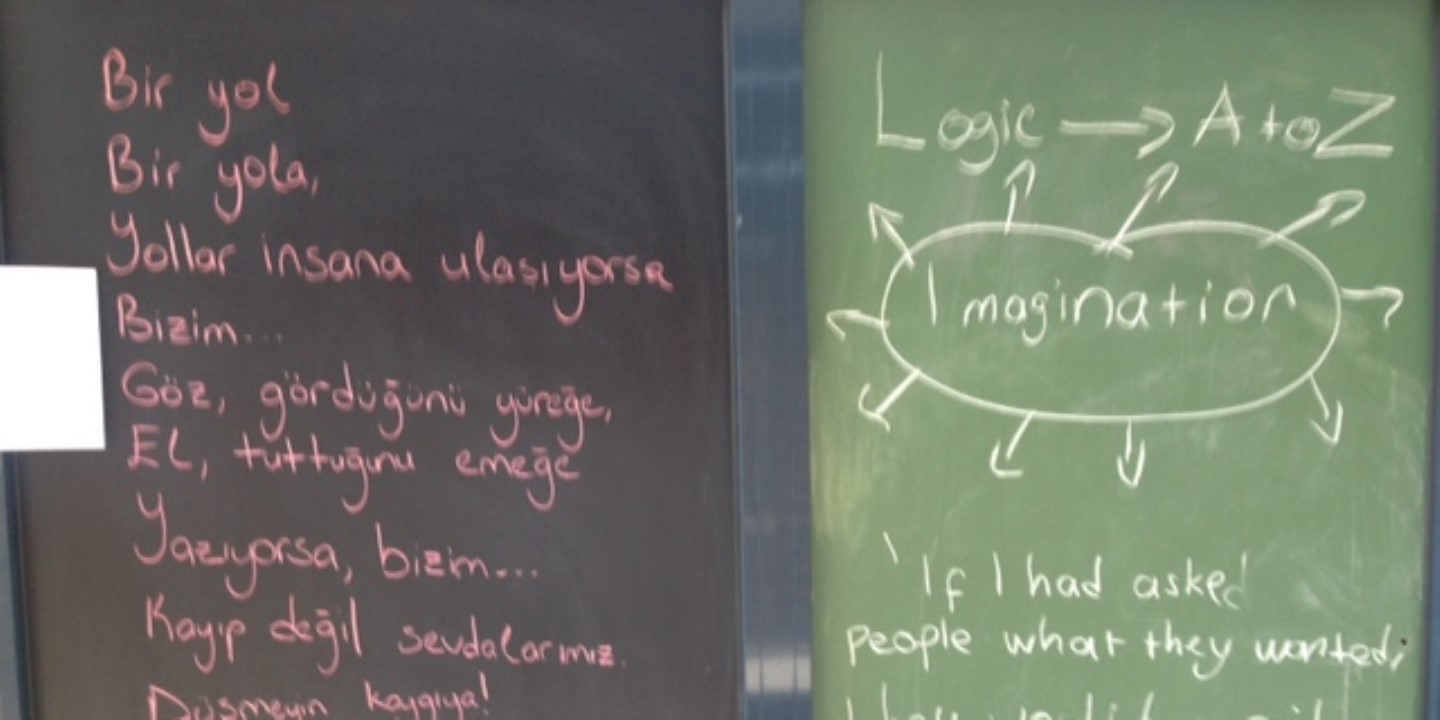 Bir yol
Bir yola,
Yollar insana ulaşıyorsa
Bizim...
Göz, gördüğünü yüreğe,
El, tuttuğunu emeğe
Yazıyorsa, bizim...
Kayıp değil sevdalarımız.
Düşmeyin kaygıya!
Logic → A to Z
Imagination
'If I had asked
people what they wanted,